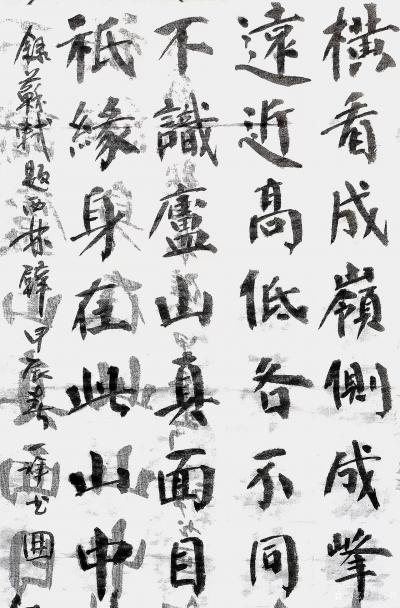 橫看成嶺側成峰
遠近高低各不同
不識廬山真面目
祇緣身在此山中
錄蘇軾題西林壁甲辰春